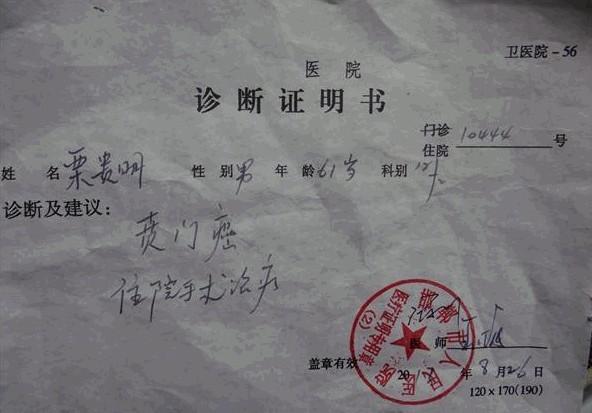 卫医院-56
医 院
诊断证明书
门诊
住院 10444 号
姓 名 栗贵明 性 别 男 年 龄 61岁 科别
诊断及建议:
贲门癌
住院手术治疗
医 师
盖章有效 20 年 8 月 26 日
120×170(190)
人民医院
医疗证明专用章
(2)